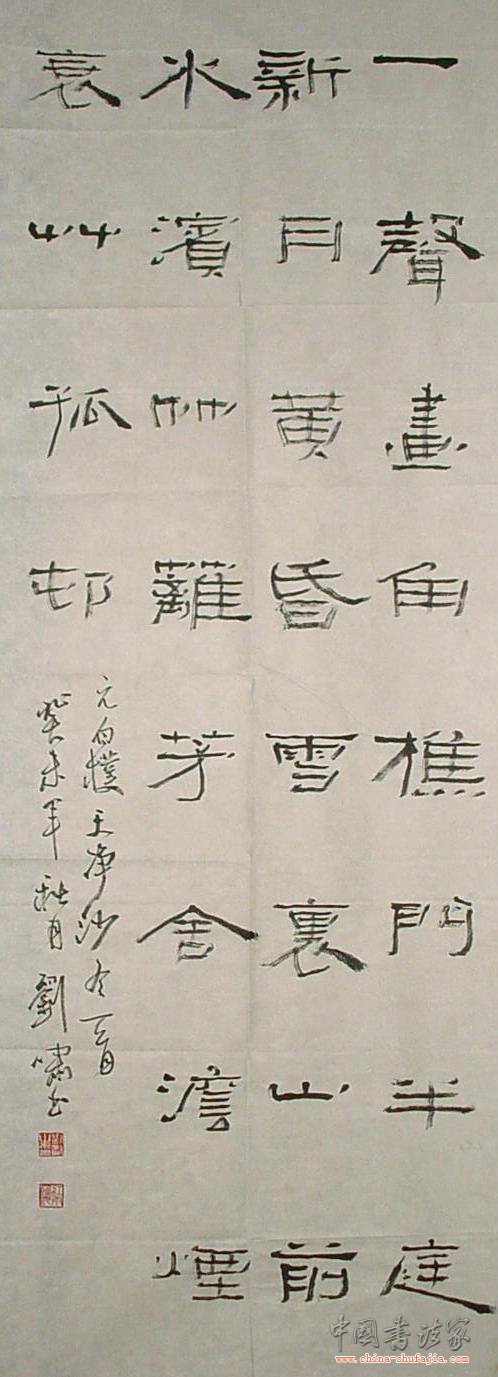 一聲畫角樵門半庭
新月黃昏雪裏山前
水濱竹蘺茅舍澹煙
衰艸孤邨
元白樸天净沙冬一首
癸未年秋月劉嘯书
中国书法家
www.china-shufajia.com